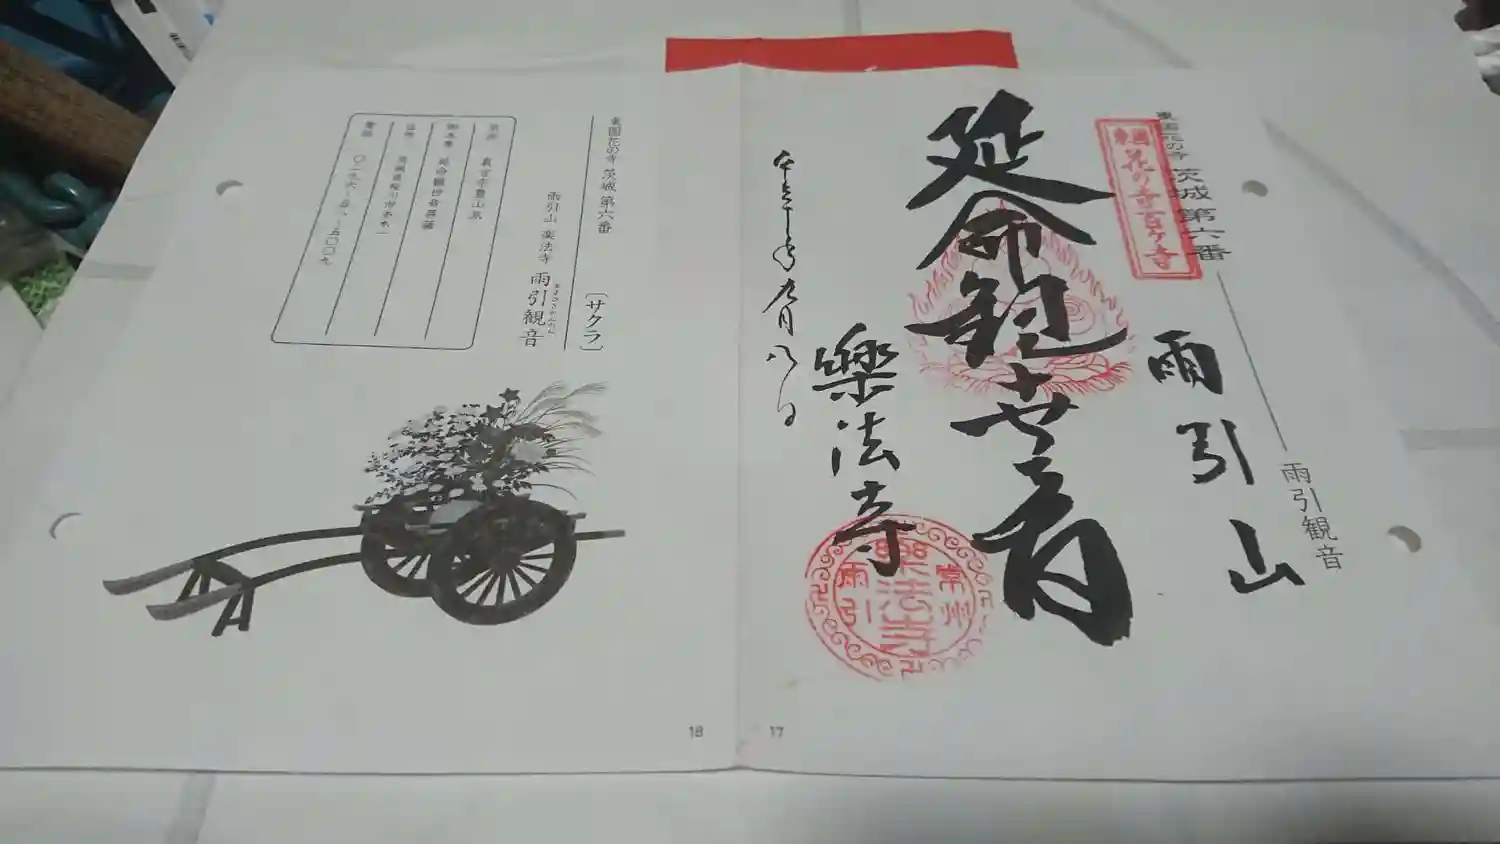 東国花の寺 茨城 第六番
雨引観音
東国花の寺百ヶ寺
雨引山
延命観世音
樂法寺
九月八日
常州
樂法寺
雨引
17
東国花の寺 茨城 第六番 〔サクラ〕
雨引山 楽法寺 雨引観音
あまびきかんのん
宗派 真言宗豊山派
御本尊 延命観世音菩薩
住所 茨城県桜川市本木一
電話
18